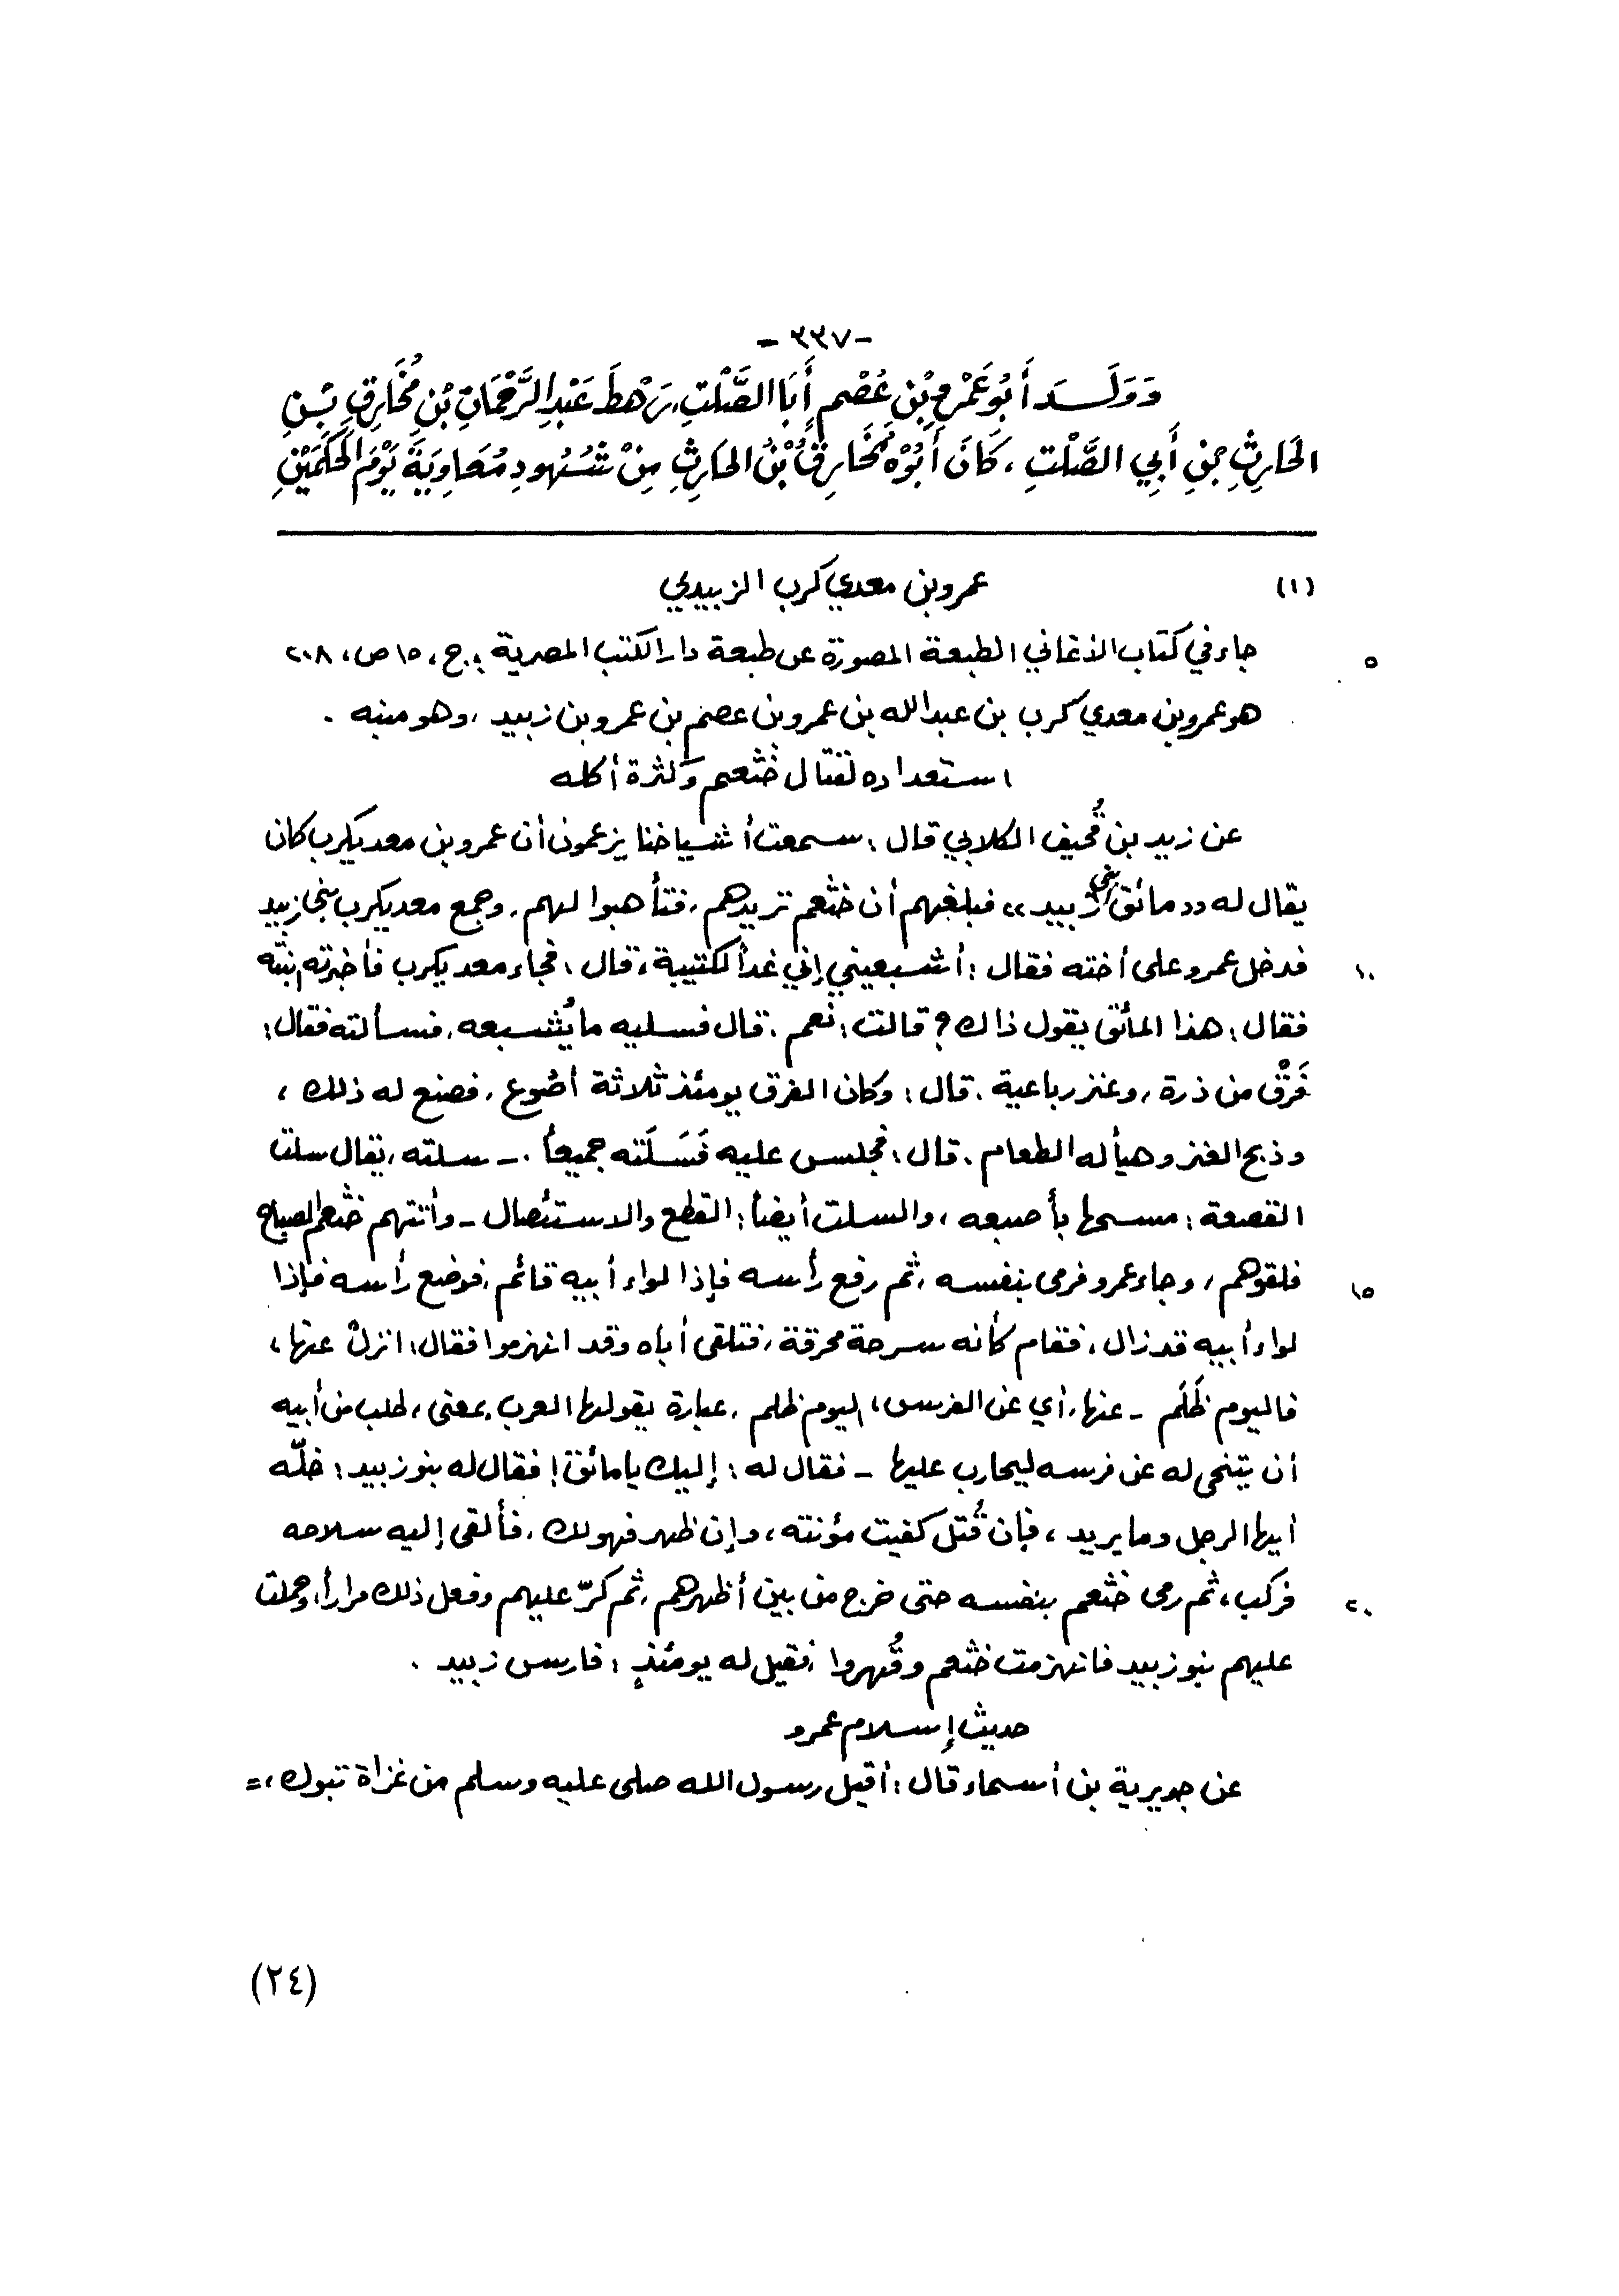 -٣٣٧-
وَوَلَــدَ أَبُو عَمْرِو بْنِ عُصْمٍ أَبَا الصَّلْتِ، رَهْطَ عَبْدِ الرَّحْمَانِ بْنِ مُخَارِقِ بْــنِ
الحَارِثِ بْنِ أَبِي الصَّلْتِ ، كَانَ أَبُوْهُ مُخَارِقُ بْنُ الحَارِثِ مِنْ شُهُودِ مُعَاوِيَةَ يَوْمَ الحَكَمَيْنِ
(١) عمرو بن معدي كرب الزبيدي
جاء في كتاب الأغاني الطبعة المصورة عن طبعة دار الكتب المصرية ، ج ، ١٥ ص، ٢٠٨ ٥
هو عمرو بن معدي كرب بن عبد الله بن عمرو بن عصم بن عمرو بن زبيد ، وهو منبه .
استعداده لقتال خثعم وكثرة أكله
عن زيد بن قُحيف الكلابي قال : سمعت أشياخنا يزعمون أن عمرو بن معديكرب كان
يقال له «مائق بني زبيد» فبلغهم أن خثعم تريدهم ، فتأهبوا لهم ، وجمع معديكرب بني زبيد
فدخل عمرو على أخته فقال : أشبعيني إني غداً لكتيبة ، قال : فجاء معديكرب فأخبرته ابنته ١٠
فقال : هذا المائق يقول ذاك ؟ قالت : نعم . قال فسليه ما يُشبعه . فسألته فقال :
فَرْق من ذرة ، وعنز رباعية . قال : وكان الفرق يومئذ ثلاثة أضوع . فصنع له ذلك ،
وذبح العنز وهيأ له الطعام . قال : فجلس عليه فَسَلَته جميعاً . - سلته ، يقال سلت
القصعة : مسحها بأصبعه ، والسلت أيضاً : القطع والاستئصال - وأتتهم خثعم الصباح
فلقوهم ، وجاء عمرو فرمى بنفسه ، ثم رفع رأسه فإذا لواء أبيه قائم ، فوضع رأسه فإذا ١٥
لواء أبيه قد زال ، فقام كأنه سرحة محرقة ، فتلقى أباه وقد انهزموا فقال : انزل عنها ،
فاليوم ظَلَم - عنها ، أي عن الفرس ، اليوم ظلم ، عبارة يقولها العرب بمعنى ، طلب من أبيه
أن يتنحى له عن فرسه ليحارب عليها - فقال له : إليك يا مائق ! فقال له بنو زبيد : خلّه
أيها الرجل وما يريد ، فإن قُتل كفيت مؤنته ، وإن ظهر فهو لك . فألقى إليه سلاحه
فركب ، ثم رمى خثعم بنفسه حتى خرج من بين أظهرهم ، ثم كرّ عليهم وفعل ذلك مراراً ، وحملت ٢٠
عليهم بنو زبيد فانهزمت خثعم وقُهروا ، فقيل له يومئذٍ : فارس زبيد .
حديث إسلام عمرو
عن جويرية بن أسماء قال : أقبل رسول الله صلى عليه وسلم من غزاة تبوك ، =
(٢٤)